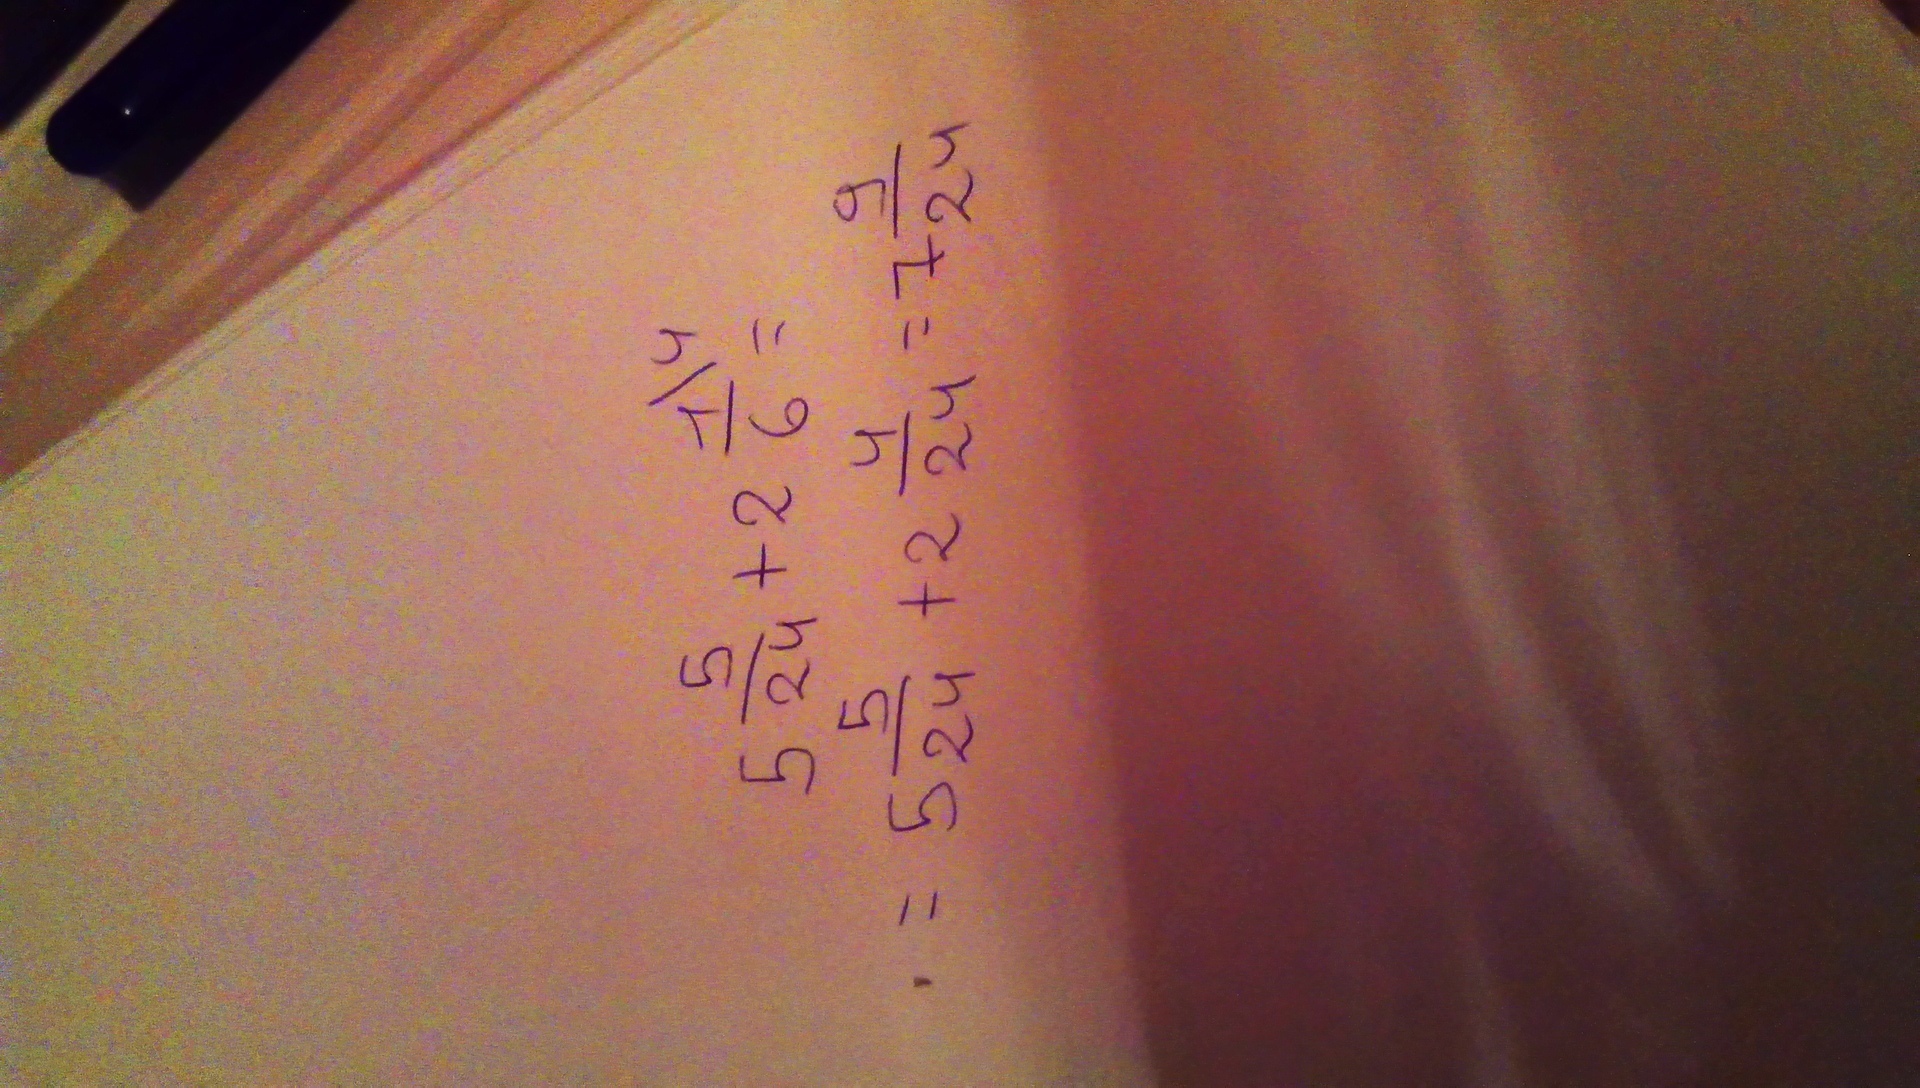 5 5/24 + 2 1\4/6 =
= 5 5/24 + 2 4/24 = 7 9/24